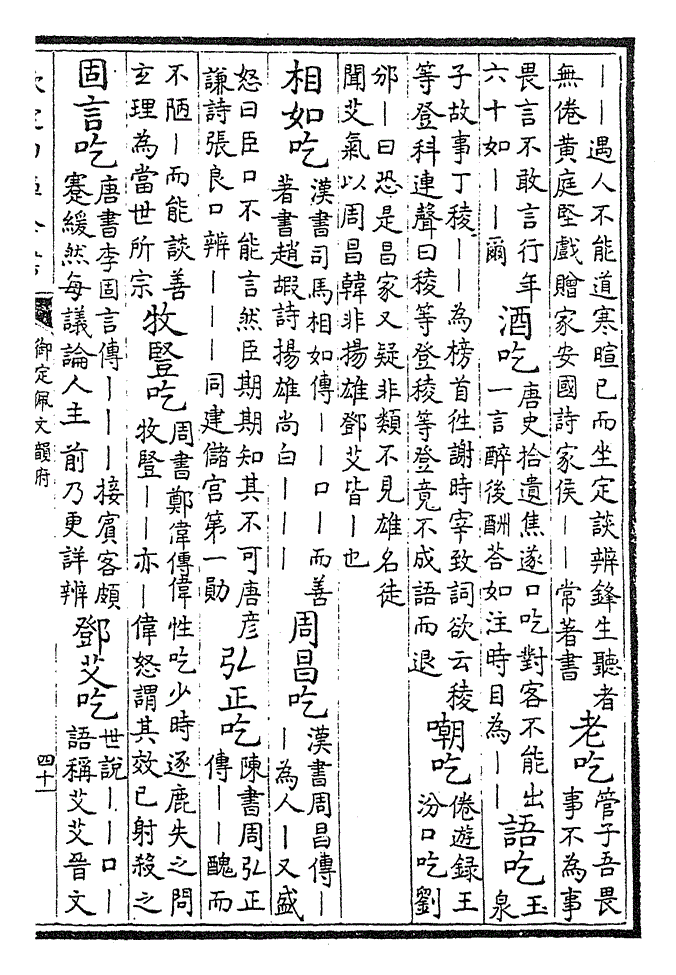 ——遇人不能道寒暄已而坐定談辨鋒生聽者
無倦黄庭堅戲贈家安國詩家侯——常著書
老吃
管子吾畏
事不為事
畏言不敢言行年
六十如——爾
酒吃
唐史拾遺焦遂口吃對客不能出
一言醉後酬荅如注時目為——
語吃
玉
泉
子故事丁稜——為榜首徃謝時宰致詞欲云稜
等登科連聲曰稜等登稜等登竟不成語而退
嘲吃
倦遊録王
汾口吃劉
邠—曰恐是昌家又疑非類不見雄名徒
聞艾氣以周昌韓非揚雄鄧艾皆—也
相如吃
漢書司馬相如傳——口—而善
著書趙嘏詩揚雄尚白———
周昌吃
漢書周昌傳—
—為人—又盛
怒曰臣口不能言然臣期期知其不可唐彦
謙詩張良口辨———同建儲宫第一勛
弘正吃
陳書周弘正
傳——醜而
不陋—而能談善
玄理為當世所宗
牧豎吃
周書鄭偉傳偉性吃少時逐鹿失之問
牧豎——亦—偉怒謂其效已射殺之
固言吃
唐書李固言傳———接賓客頗
蹇緩然每議論人主前乃更詳辨
鄧艾吃
世說——口—
語稱艾艾晉文
御定佩文韻府
四十